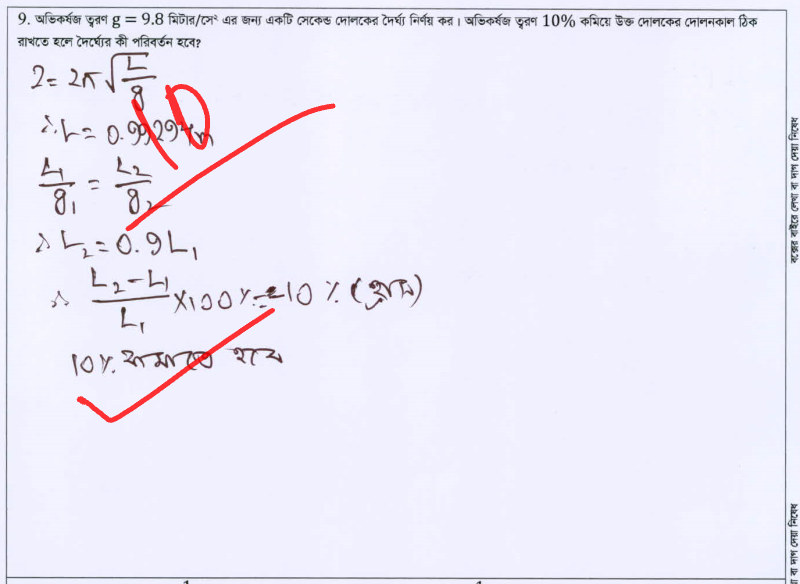 9. অভিকর্ষজ ত্বরণ g = 9.8 মিটার/সে² এর জন্য একটি সেকেন্ড দোলকের দৈর্ঘ্য নির্ণয় কর। অভিকর্ষজ ত্বরণ 10% কমিয়ে উক্ত দোলকের দোলনকাল ঠিক
রাখতে হলে দৈর্ঘ্যের কী পরিবর্তন হবে?
2 = 2π√(L/g)
10
∴ L = 0.99294m
L₁/g₁ = L₂/g₂
∴ L₂ = 0.9L₁
∴ (L₂ - L₁)/L₁ ×100% = -10% (হ্রাস)
10% কমাতে হবে
বক্সের বাইরে লেখা বা দাগ দেয়া নিষেধ
বা দাগ দেয়া নিষেধ